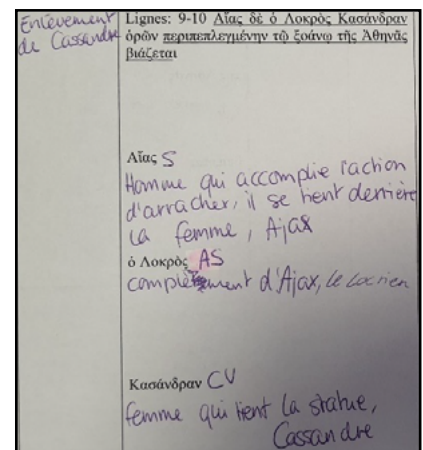 Enlèvement
de Cassandre
Lignes: 9-10 Αἴας δὲ ὁ Λοκρὸς Κασάνδραν
ὁρῶν περιπεπλεγμένην τῷ ξοάνῳ τῆς Ἀθηνᾶς
βιάζεται
Αἴας S
Homme qui accomplie l'action
d'arracher, il se tient derrière
la femme, Ajax
ὁ Λοκρὸς AS
complétement d'Ajax, le Locrien
Κασάνδραν CV
femme qui tient la statue,
Cassandre